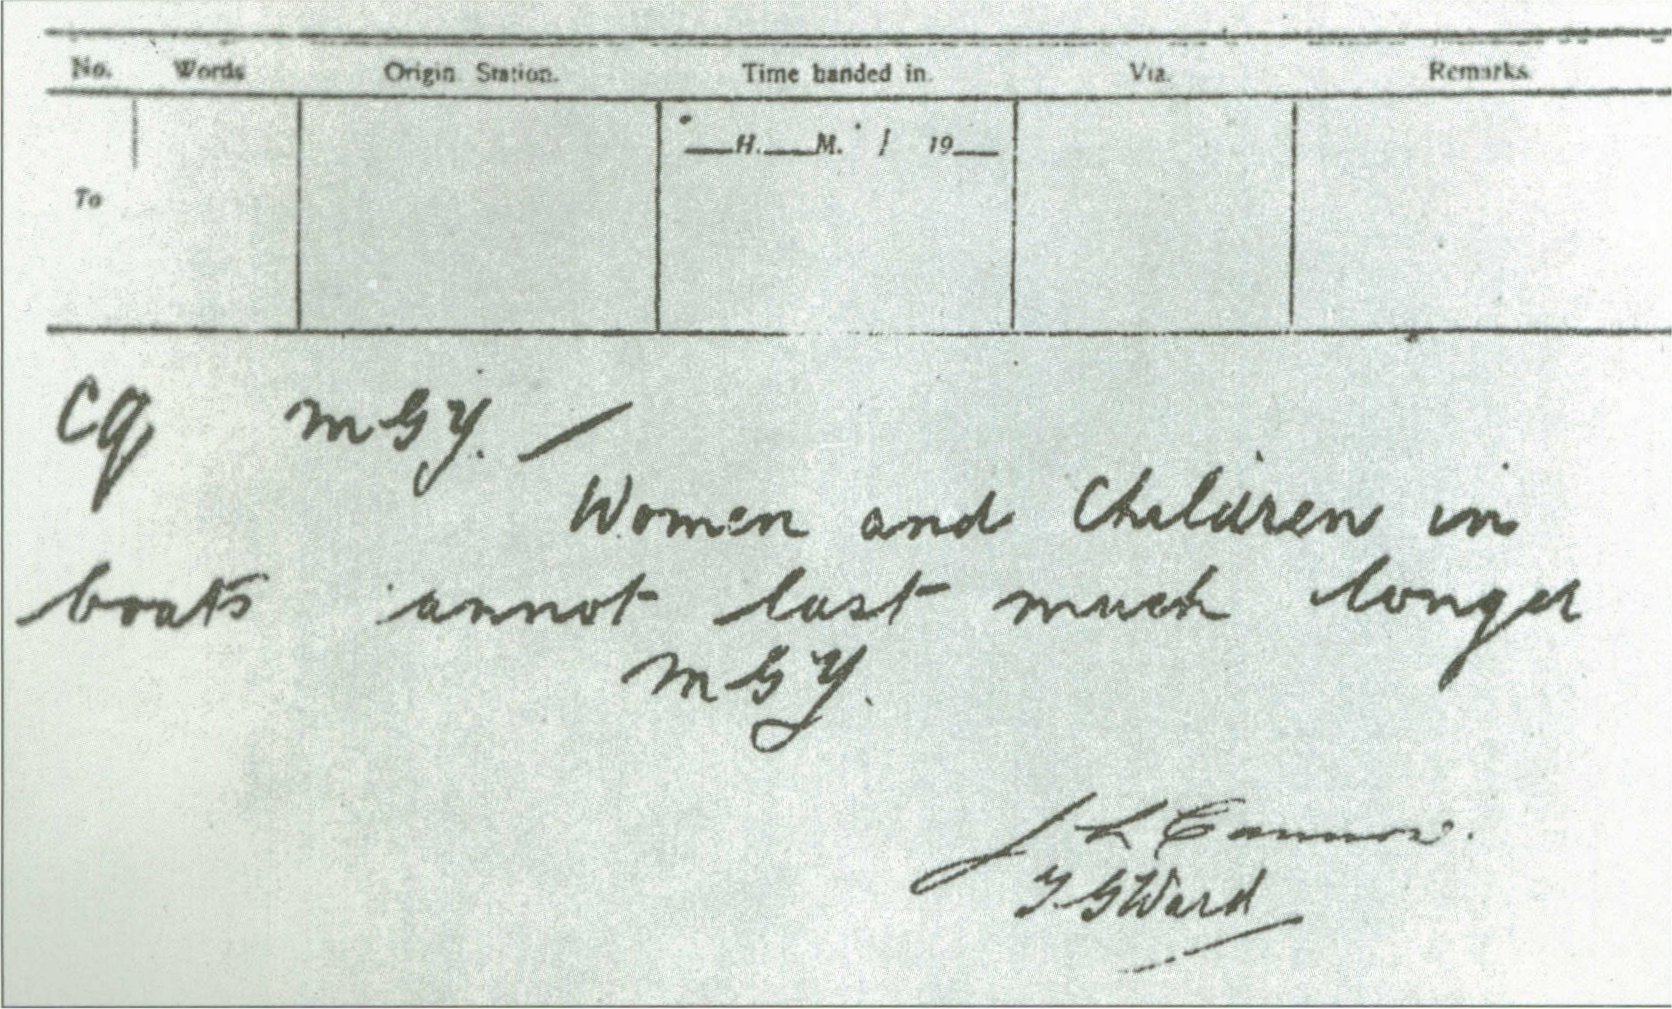 No. Words Origin Station. Time handed in. Via. Remarks.
H. M. / 19
To
CQ MGY. /
Women and Children in
boats annot last much longer
MGY.
J L Cannon.
G Ward